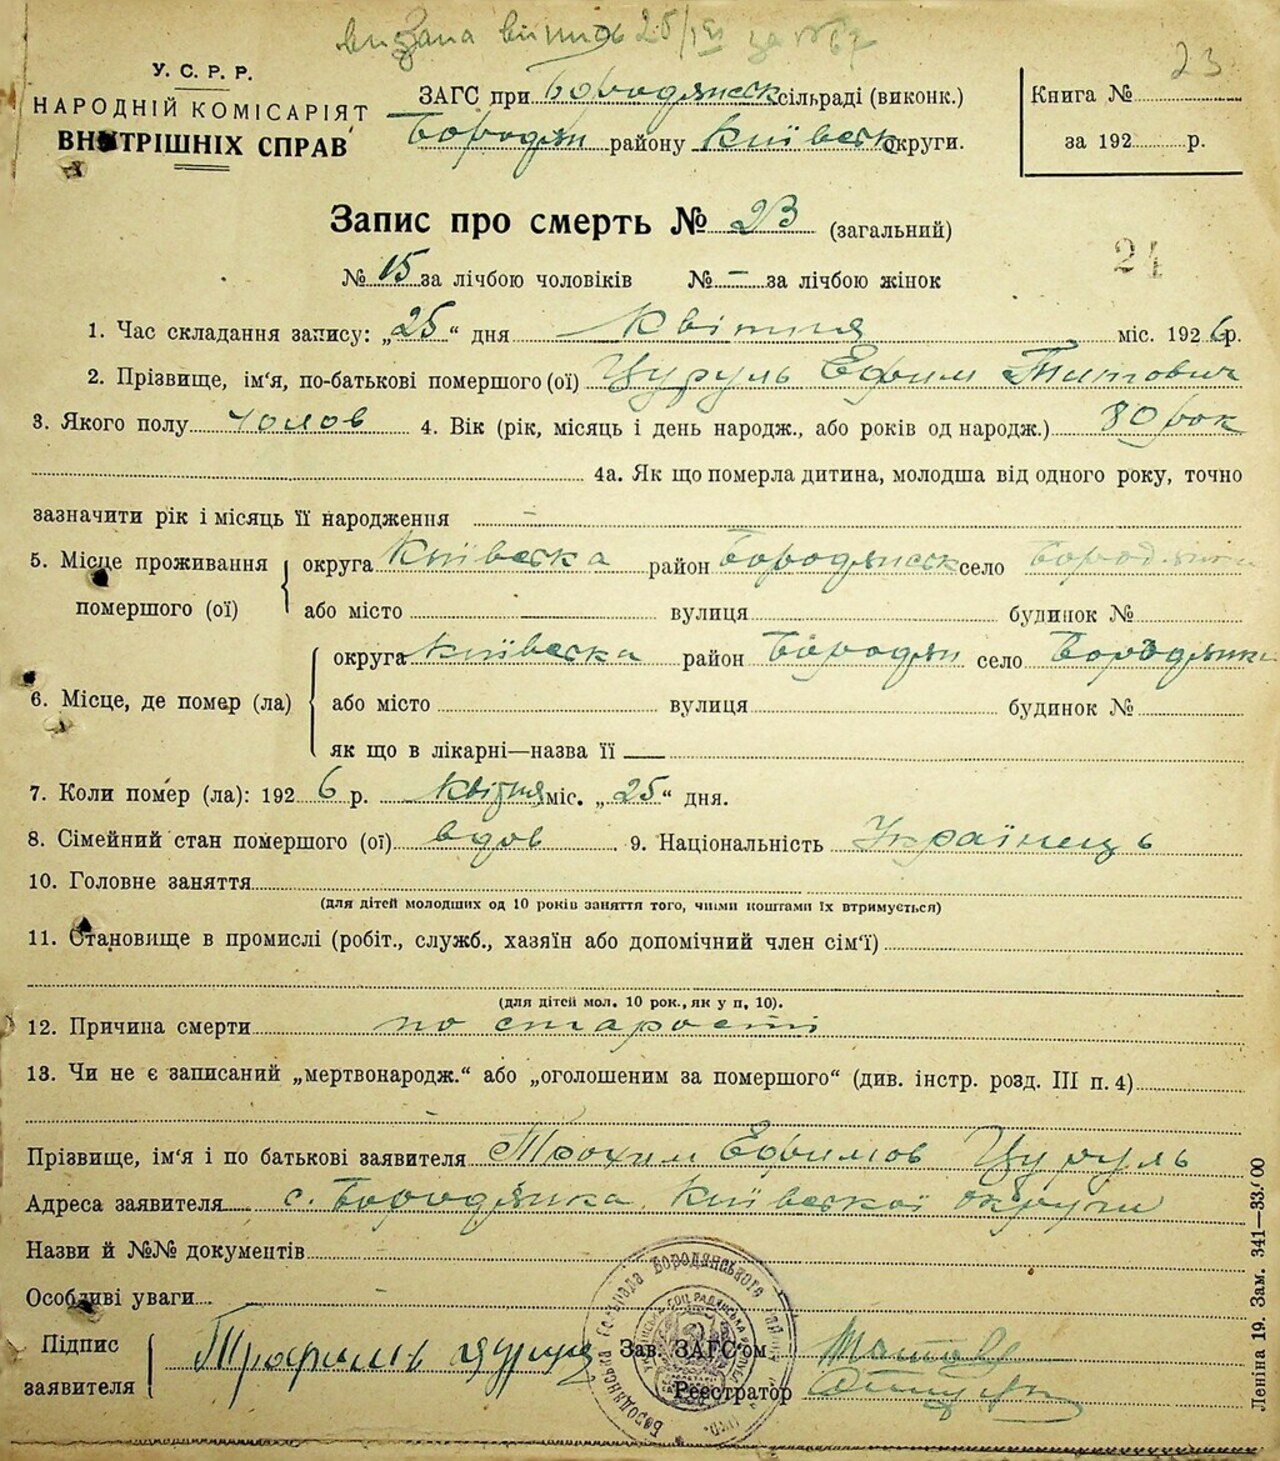 видана 25/IV за № 67
23
У. С. Р. Р.
НАРОДНІЙ КОМІСАРІЯТ
ВНУТРІШНІХ СПРАВ
ЗАГС при Бородянськ сільраді (виконк.)
Бородян району Київськ округи.
Книга №
за 192 р.
Запис про смерть № 23 (загальний)
24
№ 15 за лічбою чоловіків № – за лічбою жінок
1. Час складання запису: „25“ дня Квітня міс. 1926 р.
2. Прізвище, ім'я, по-батькові помершого (ої) Цуруль Ефим Титович
3. Якого полу чолов 4. Вік (рік, місяць і день народж., або років од народж.) 80 рок
4а. Як що померла дитина, молодша від одного року, точно
зазначити рік і місяць її народження –
5. Місце проживання помершого (ої)
округа Київська район Бородянськ село Бородянка
або місто вулиця будинок №
6. Місце, де помер (ла)
округа Київська район Бородян село Бородянка
або місто вулиця будинок №
як що в лікарні—назва її —
7. Коли помер (ла): 1926 р. Квітня міс. „25“ дня.
8. Сімейний стан помершого (ої) вдов 9. Національність Українець
10. Головне заняття
(для дітей молодших од 10 років заняття того, чиїми коштами їх втримується)
11. Становище в промислі (робіт., служб., хазяїн або допомічний член сім'ї)
(для дітей мол. 10 рок., як у п. 10).
12. Причина смерти по старості
13. Чи не є записаний „мертвонародж.“ або „оголошеним за помершого“ (див. інстр. розд. III п. 4)
Прізвище, ім'я і по батькові заявителя Трохим Ефимов Цуруль
Адреса заявителя с. Бородянка Київської округи
Назви й №№ документів
Особливі уваги
Підпис заявителя Трофимъ
Зав. ЗАГС'ом
Реєстратор
Бородянська сільрада Бородянського
Леніна 19. Зам. 341—33.000